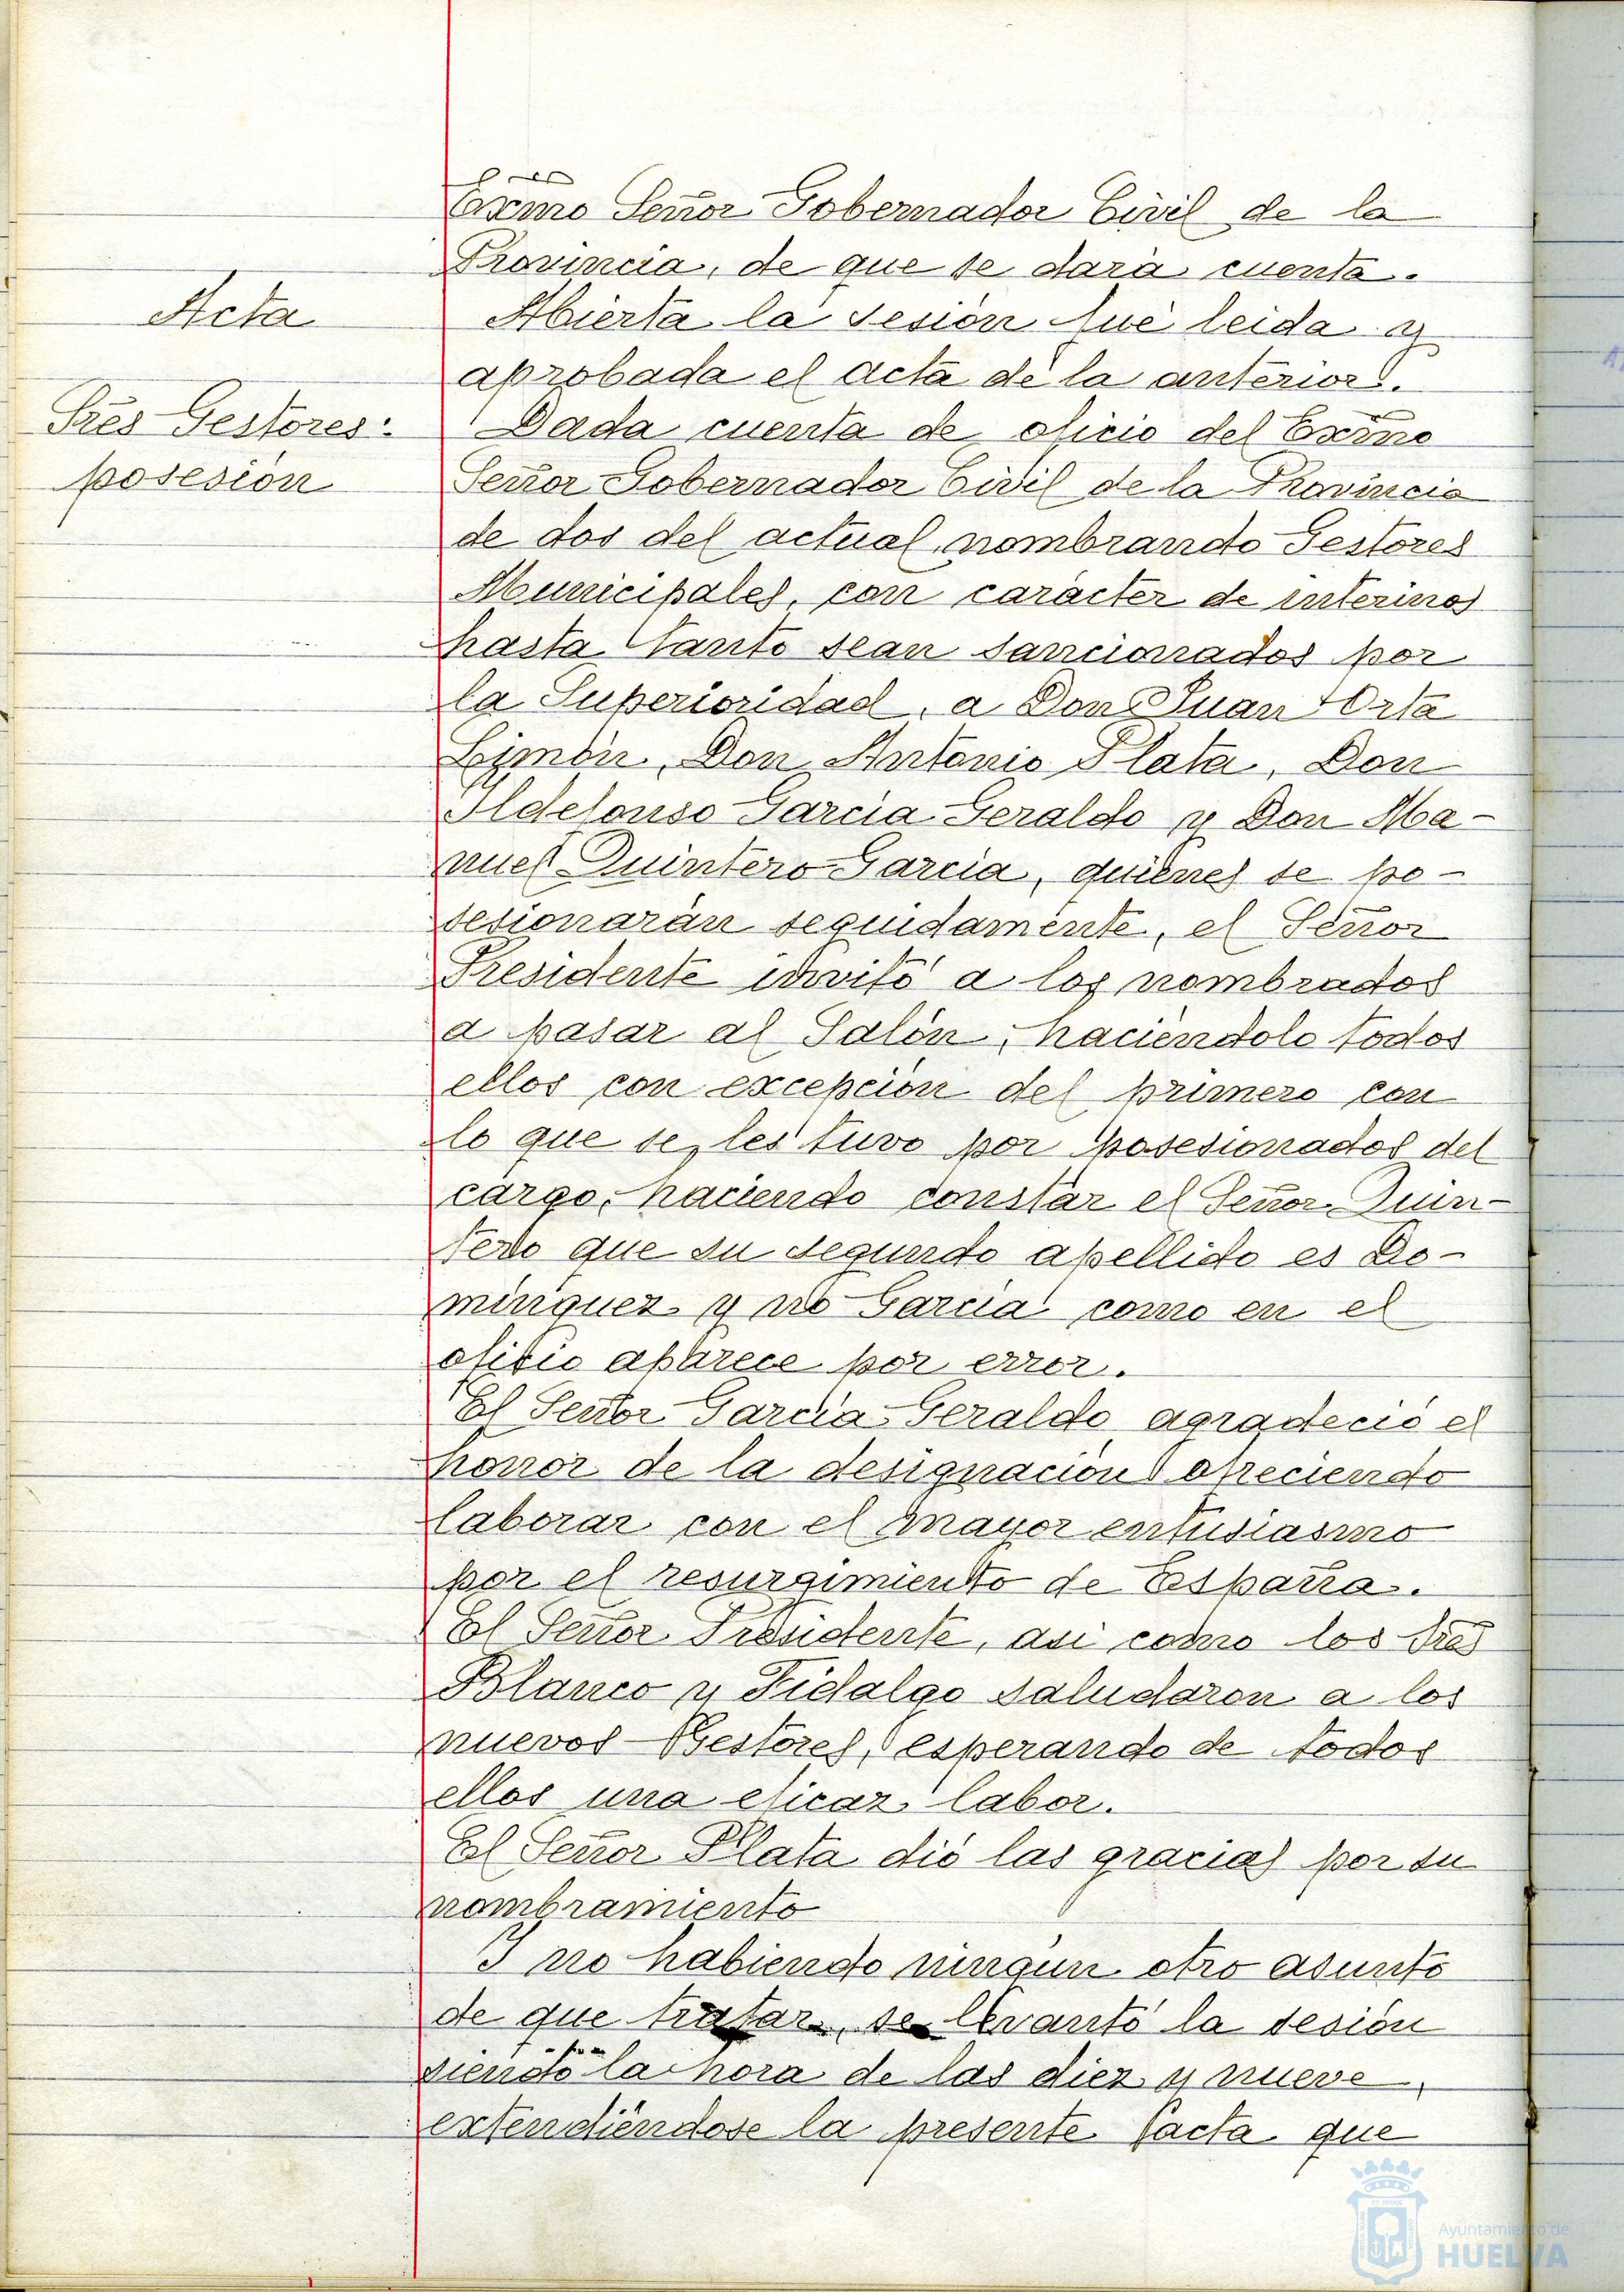 Exmo Señor Gobernador Civil de la
Provincia, de que se dará cuenta.
Acta
Abierta la sesión fué leida y
aprobada el acta de la anterior.
Tres Gestores:
posesión
Dada cuenta de oficio del Exmo
Señor Gobernador Civil de la Provincia
de dos del actual, nombrando Gestores
Municipales, con carácter de interinos
hasta tanto sean sancionados por
la Superioridad, a Don Juan Orta
Limón, Don Antonio Plata, Don
Ildefonso García Geraldo y Don Ma-
nuel Quintero García, quienes se po-
sesionarán seguidamente, el Señor
Presidente invitó a los nombrados
a pasar al Salón, haciéndolo todos
ellos con excepción del primero con
lo que se les tuvo por posesionados del
cargo, haciendo constar el Señor Quin-
tero que su segundo apellido es Do-
minguez y no García como en el
oficio aparece por error.
El Señor García Geraldo agradeció el
honor de la designación ofreciendo
laborar con el mayor entusiasmo
por el resurgimiento de España.
El Señor Presidente, asi como los Sres
Blanco y Fidalgo saludaron a los
nuevos Gestores, esperando de todos
ellos una eficaz labor.
El Señor Plata dió las gracias por su
nombramiento
I no habiendo ningún otro asunto
de que tratar, se levantó la sesión
siendo la hora de las diez y nueve,
extendiéndose la presente acta que
Ayuntamiento de
HUELVA